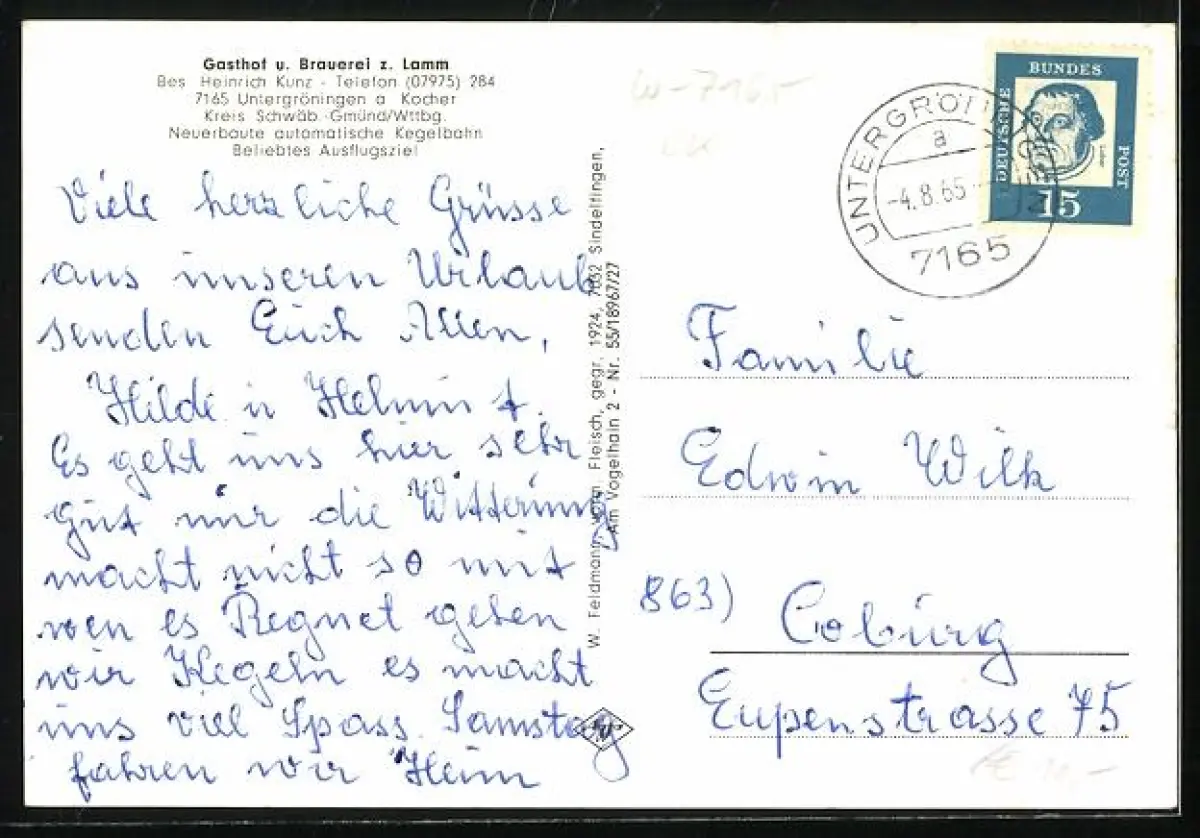 Gasthof u. Brauerei z. Lamm
Bes Heinrich Kunz - Telefon (07975) 284
7165 Untergröningen a Kocher
Kreis Schwäb.-Gmünd/Wttbg.
Neuerbaute automatische Kegelbahn
Beliebtes Ausflugsziel
Viele herzliche Grüsse
aus unseren Urlaub
senden Euch Allen,
Hilde u Helmut.
Es geht uns hier sehr
gut nur die Witterung
macht nicht so mit
wen es Regnet gehen
wir Kegeln es macht
uns viel Spass. Samstag
fahren wir Heim
W. Feldmann, Fleisch, gegr. 1924, 7032 Sindelfingen,
Am Vogelhain 2 - Nr. 55/18967/27
W-7165
UNTERGRÖNINGEN
a
-4.8.65
7165
DEUTSCHE BUNDES POST
Luther
15
Familie
Edwin Wilk
863) Coburg
Eupenstrasse 75